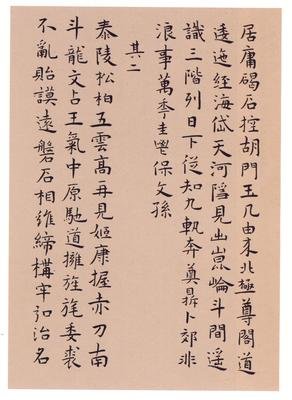 居庸碣石控胡門玉几由来北極尊閣道
逶迤經海岱天河隱見出崑崙斗間遥
識三階列日下從知九軌奔奠鼎卜郊非
浪事萬季圭鬯保文孫
其二
泰陵松柏五雲高再見姬康握赤刀南
斗龍文占王氣中原馳道擁旌旄委裘
不亂貽謨遠磐石相維締構牢弘治名